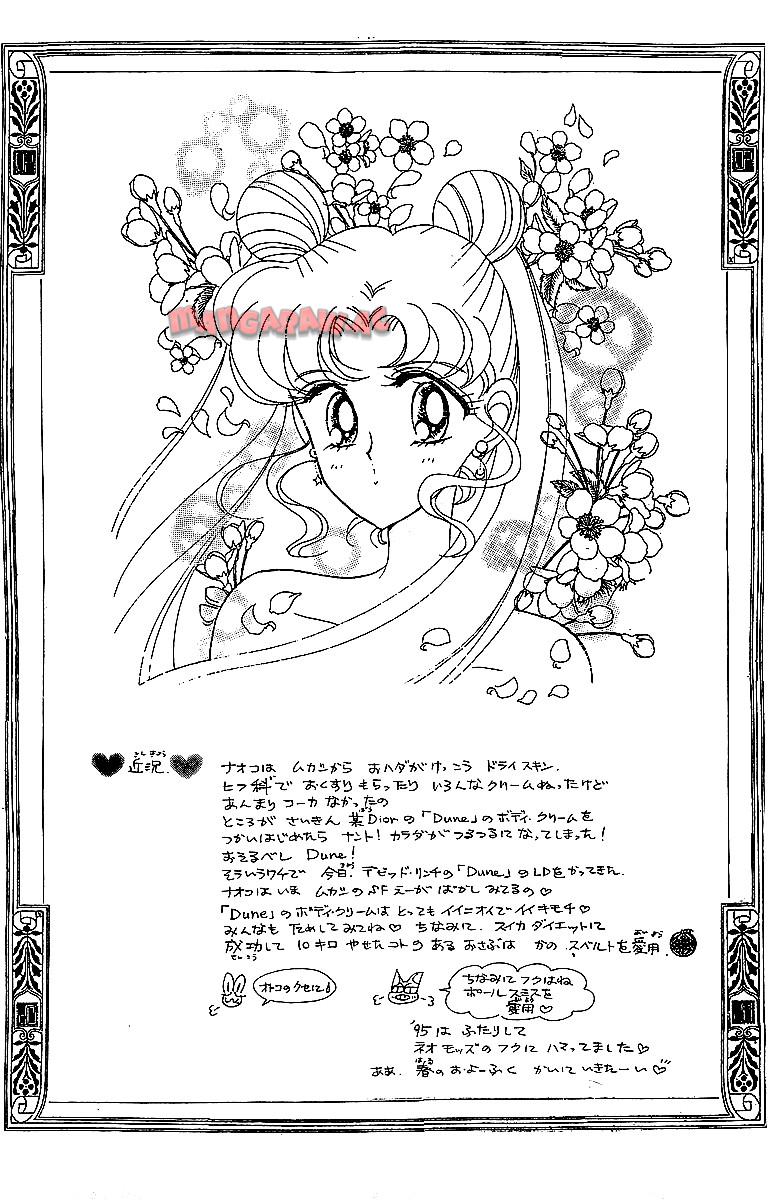 mangapark.net
近況.
きんきょう
ナオコは ムカシから おハダがけっこう ドライスキン.
ヒフ科で おくすりもらったり いろんなクリームぬったけど
あんまり コーカ なかったの
ところが さいきん 某Diorの「Dune」のボディ・クリームを
つかいはじめたら ナント! カラダがつるつるになってしまった!
おそるべし Dune!
そういうワケで 今日. デビッド・リンチの「Dune」のLDをかってきた.
ナオコは いま ムカシのSFえーがばかし みてるの♡
「Dune」のボディ・クリームは とっても イイニオイで イイキモチ♡
みんなも ためしてみてね♡ ちなみに. スイカダイエットに
成功して 10キロ やせたコトのある おさぶは かの スベルトを愛用.
せいこう
あいよう
オトコのクセに
ちなみにフクはね
ポールスミスを
愛用♡
'95は ふたりして
ネオモッズのフクに ハマってました♡
ああ. 春の およーふく かいに いきたーい♡
はる